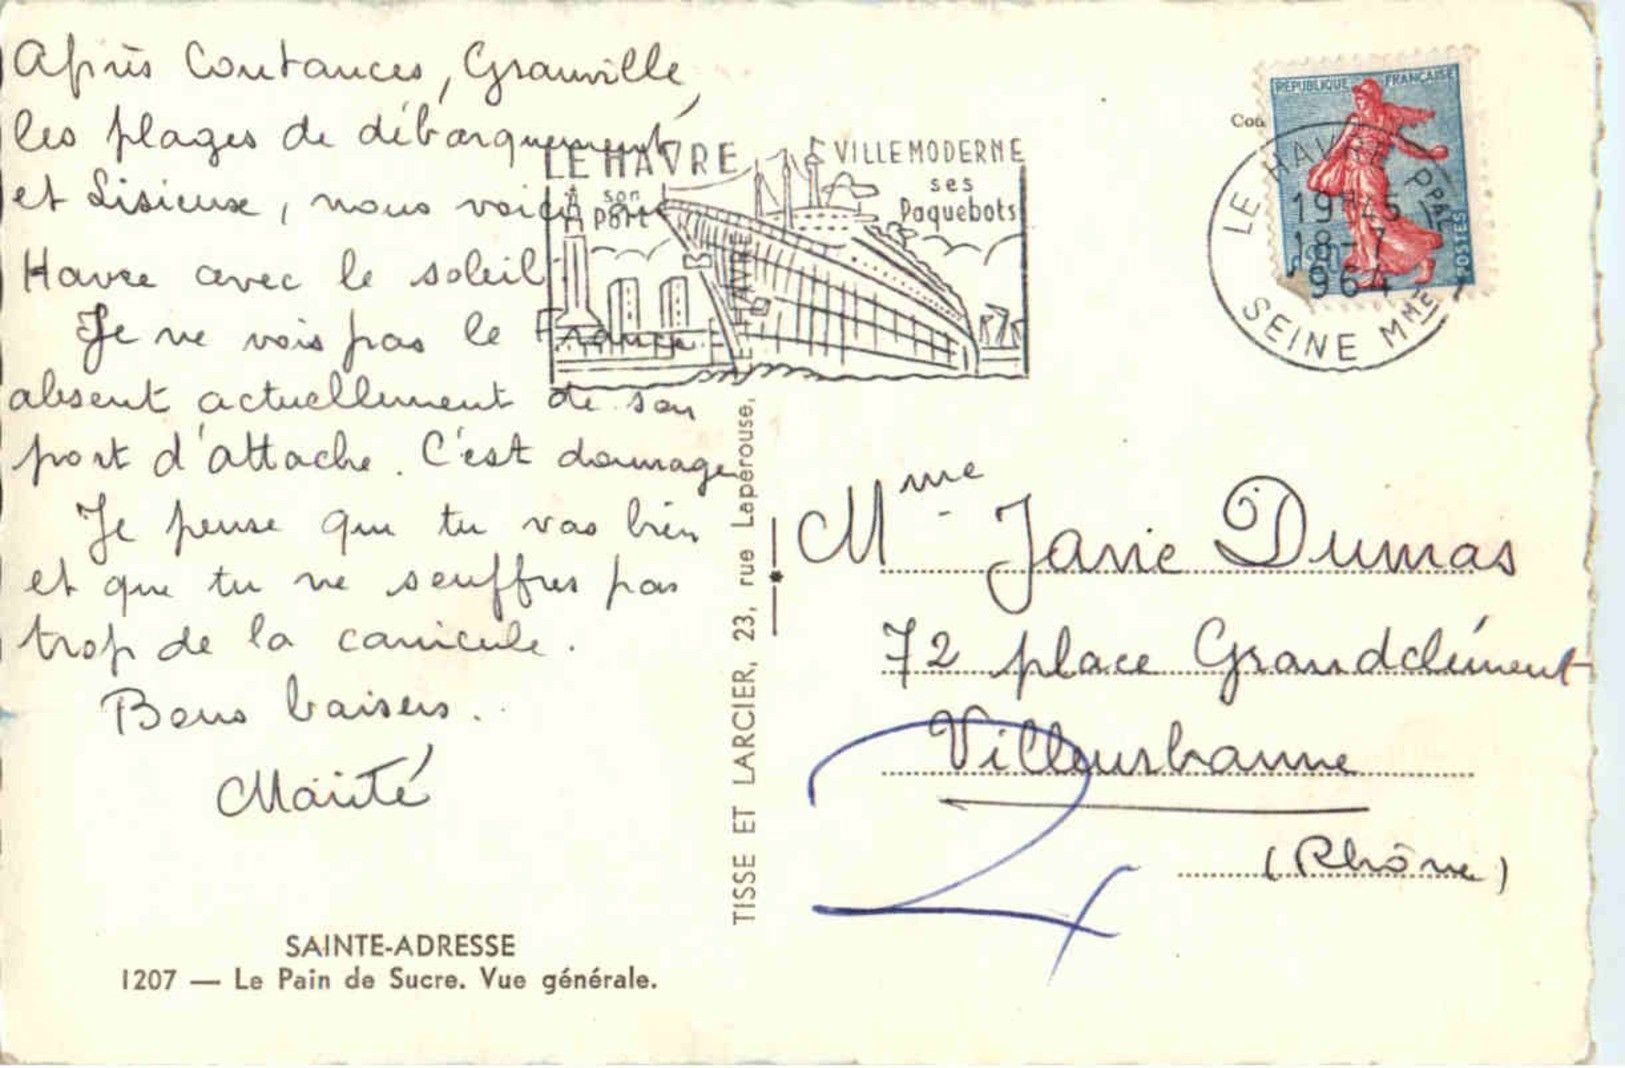 Après Coutances, Granville,
les plages de débarquement
et Lisieux, nous voici
Havre avec le soleil
Je ne vois pas le France
absent actuellement de son
port d'attache. C'est dommage
Je pense que tu vas bien
et que tu ne souffres pas
trop de la canicule.
Bons baisers.
Maïté
SAINTE-ADRESSE
1207 — Le Pain de Sucre. Vue générale.
TISSE ET LARCIER, 23, rue Lapérouse, LE HAVRE
LE HAVRE
son
Port
VILLE MODERNE
ses
Paquebots
REPUBLIQUE FRANÇAISE
POSTES
LE HAVRE PPAL
19H45
18-7
1964
SEINE MME
Mme Janie Dumas
72 place Grandclément
Villeurbanne
(Rhône)